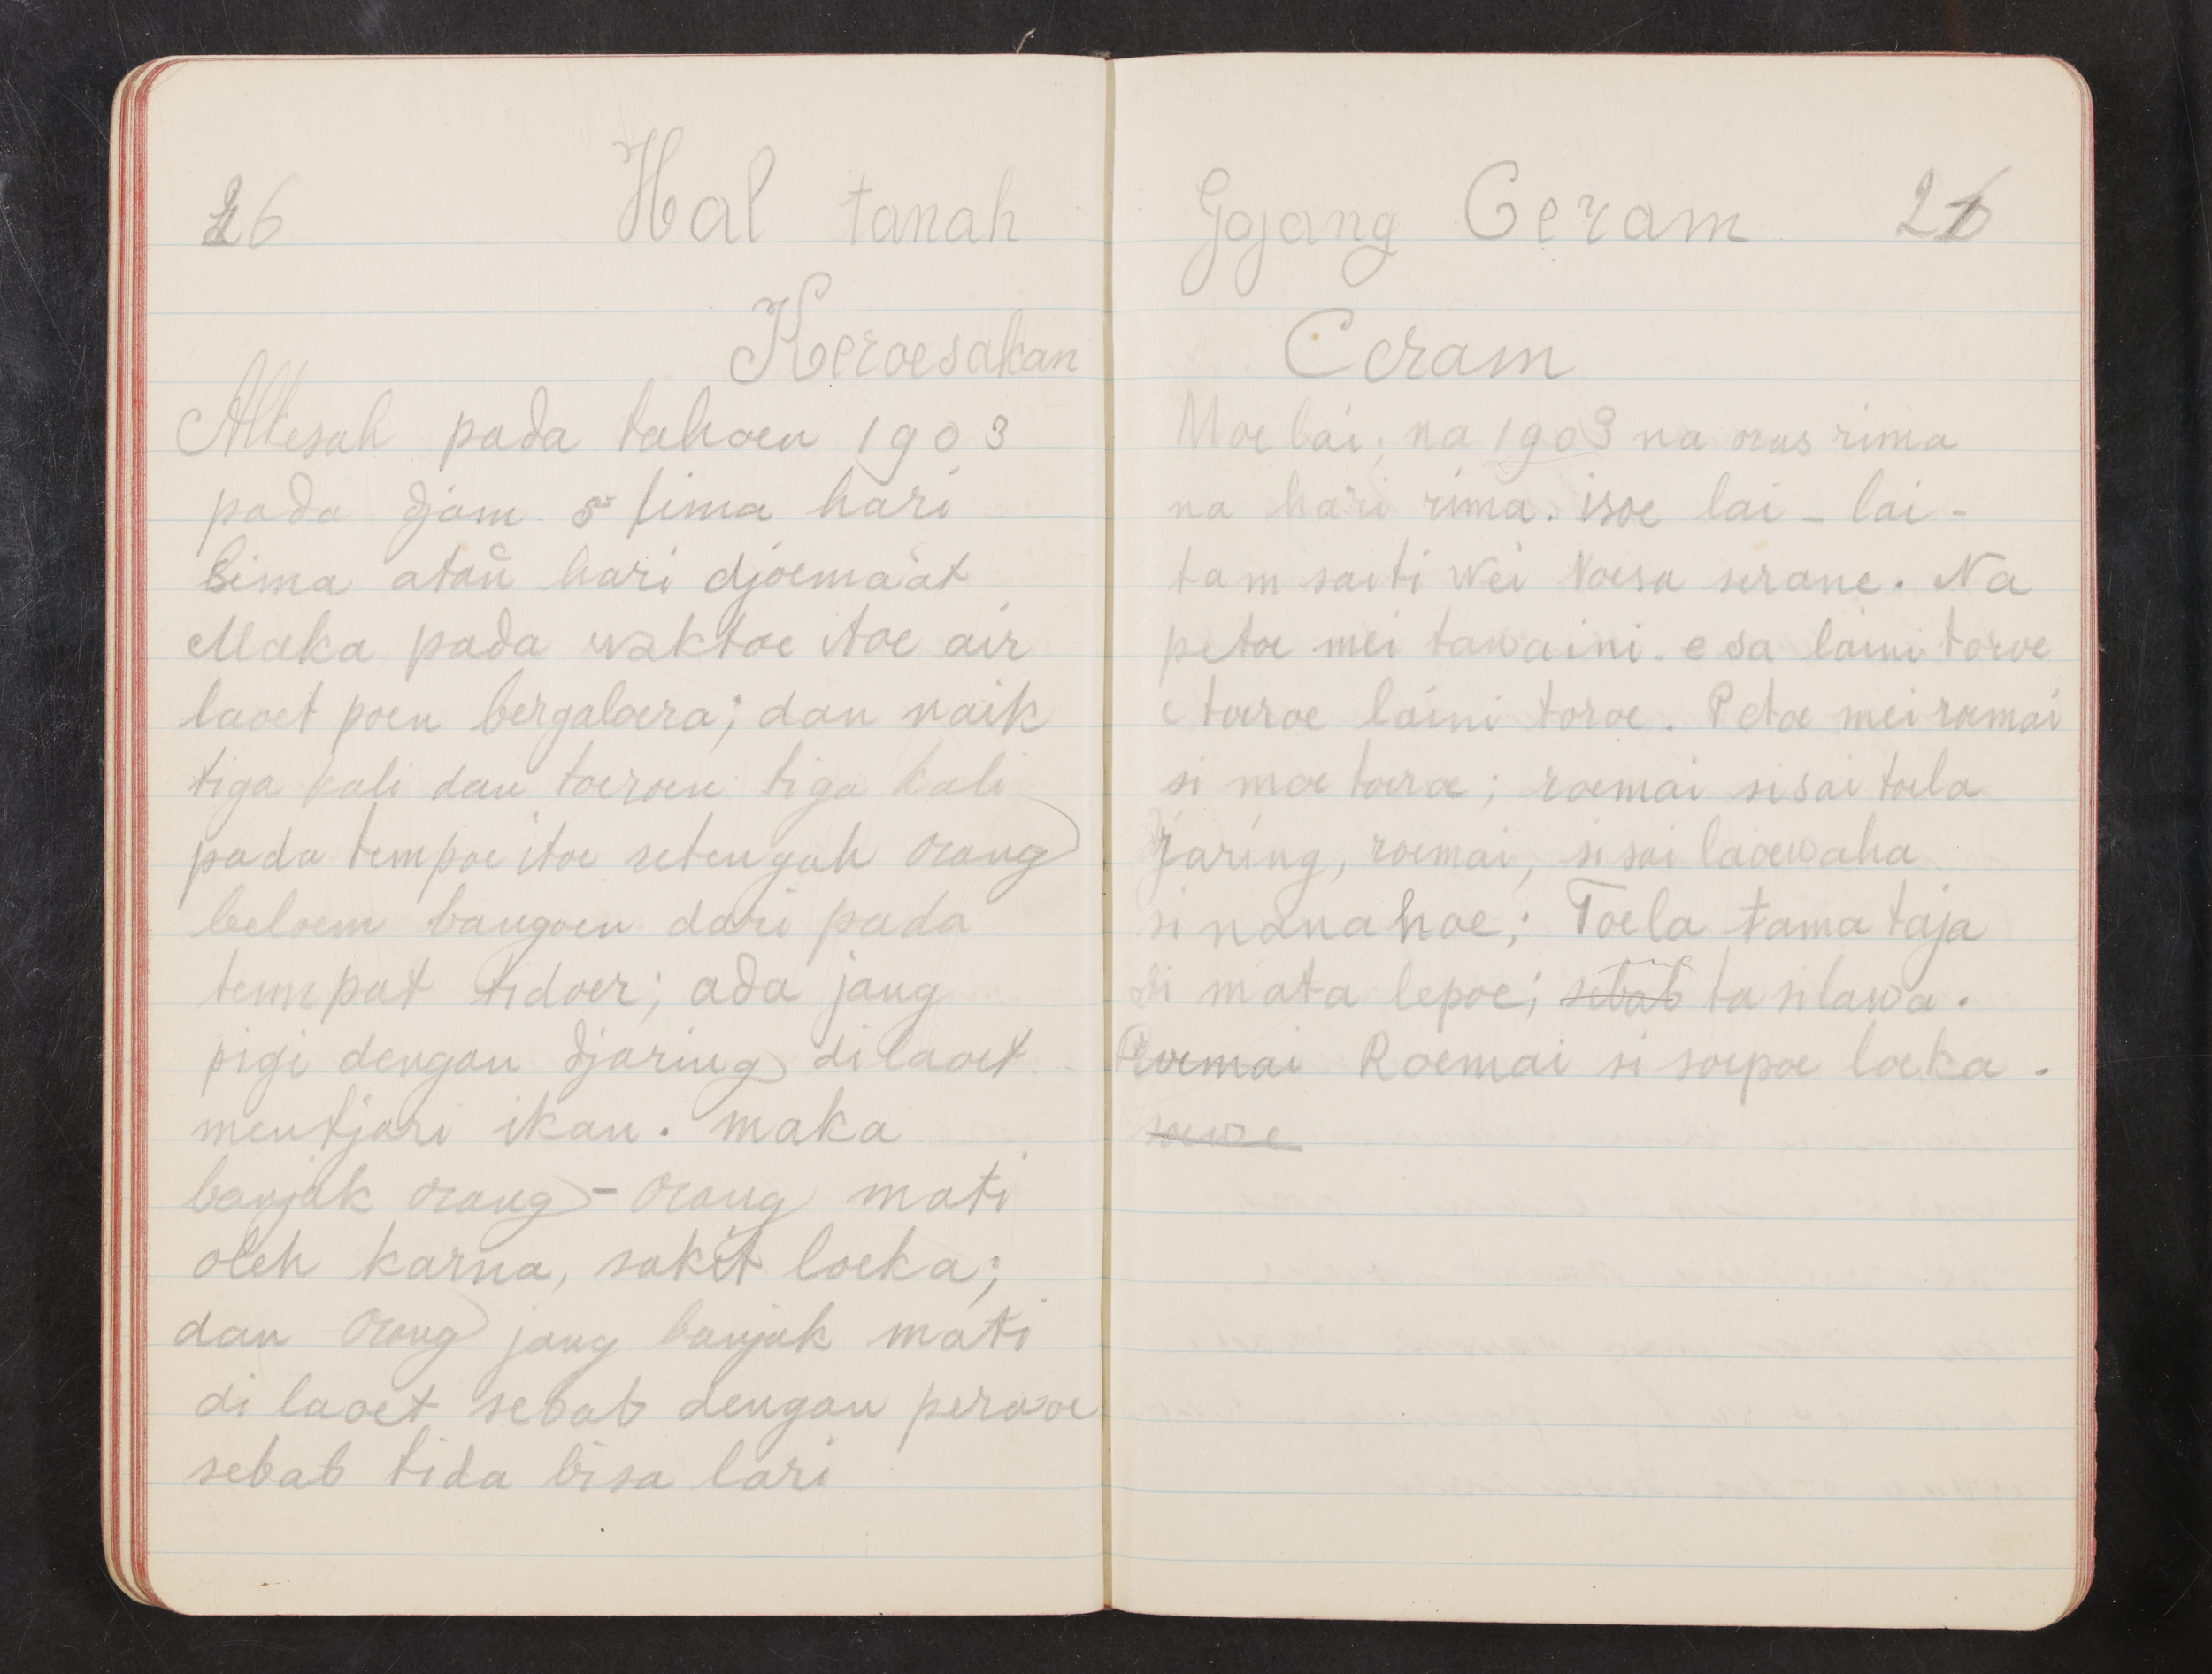 26
Hal tanah
Keroesakan
Alkesah pada tahoen 1903
pada djam 5 lima hari
lima ataū hari djoemaàt
Maka pada waktoe itoe air
laoet poen bergaloera; dan naik
tiga kali dan toeroen tiga kali
pada tempoe itoe setengah orang
beloem bangoen dari pada
tempat tidoer; ada jang
pigi dengan djaring dilaoet
mentjari ikan. maka
banjak orang-orang mati
oleh karna, sakit loeka;
dan orang jang banjak mati
di laoet sebab dengan
sebab tida bisa lari
Gojang Ceram 26
Ceram
Moelai; na 1903 na oras rima
na hari rima. isoe lai - lai -
tam saiti wei Noesa serane. Na
petoe mei tawaini. esa laini toroe
etoeroe laini toroe. Petoe mei roemai
si moe toeroe; roemai sisai toela
jaring, roemai, sisai laoewaha
si nanahoe; Toela tama taja
si mata lepoe; sebab ta silawa.
Roemai Roemai si soepoe loeka.